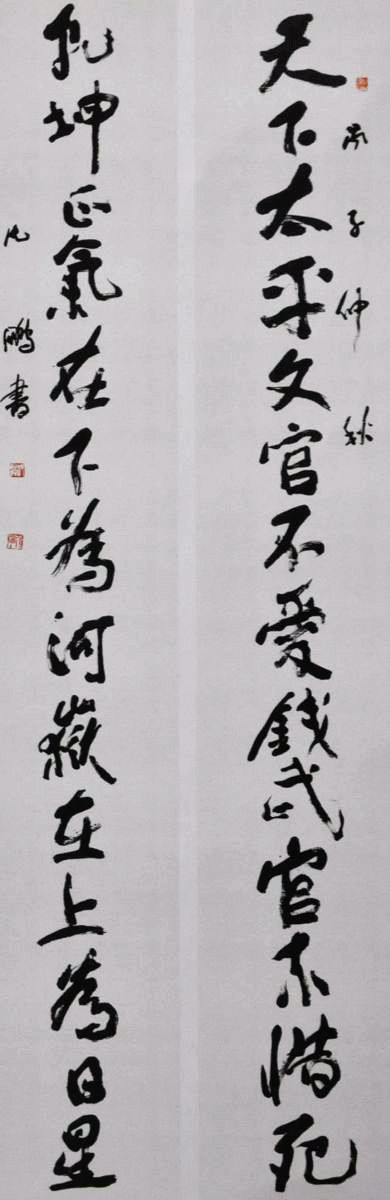 天下太平文官不愛錢武官不惜死
丙子仲秋
乾坤正氣在下為河嶽在上為日星
沈鵬書